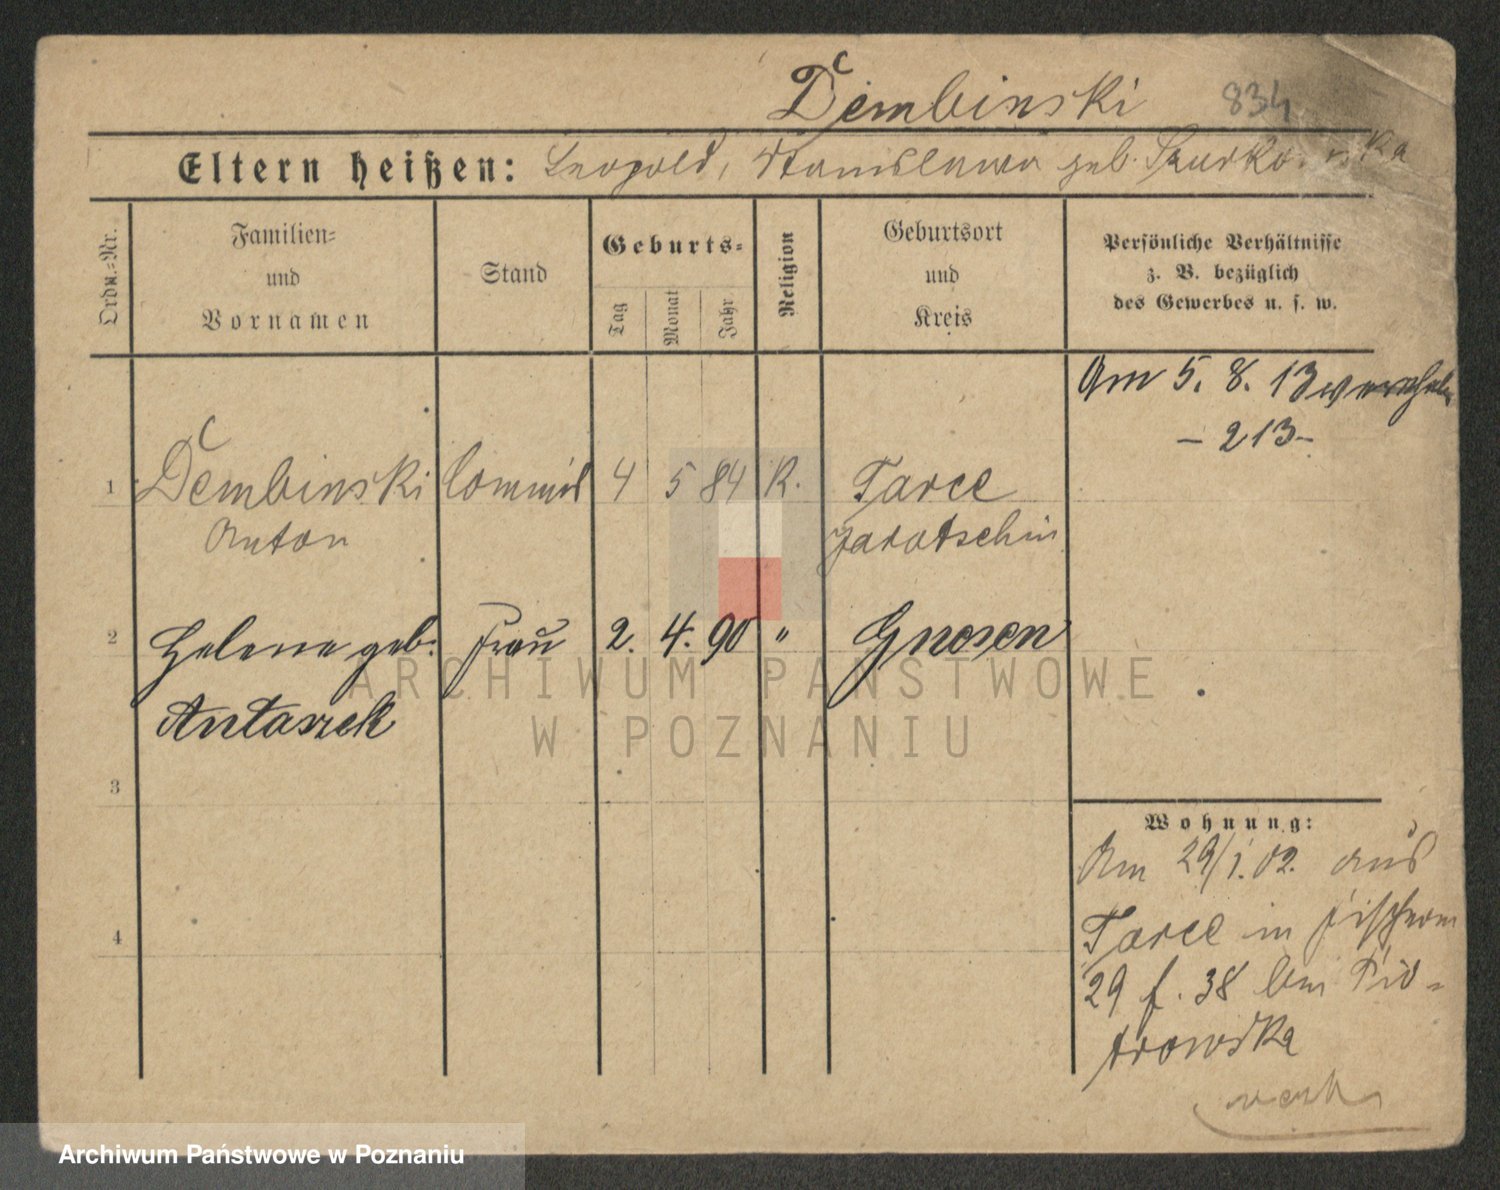 Dembinski 834
Eltern heißen: Leopold, Stanislawa geb.
Ordn.-Nr.
Familien-
und
Vornamen
Stand
Geburts-
Tag
Monat
Jahr
Religion
Geburtsort
und
Kreis
Persönliche Verhältnisse
z. B. bezüglich
des Gewerbes u. s. w.
Am 5. 8. 13
- 213 -
1 Dembinski Commis 4 5 84 K. Tarce
Anton Jarotschin
2 Helene geb: Frau 2. 4. 90 " Gnesen
Antaszek
3
4
Wohnung:
Am 29/1. 02. aus
Tarce in
29 f. 38 bei Pio-
trowska
ARCHIWUM PAŃSTWOWE
W POZNANIU
Archiwum Państwowe w Poznaniu